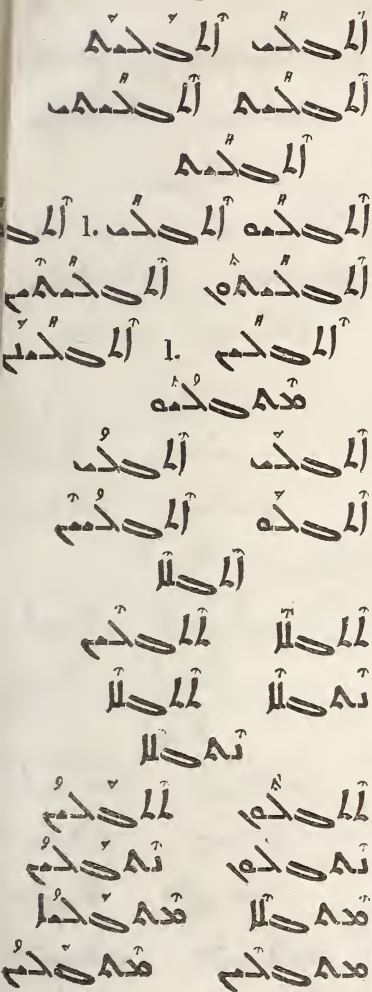 ܐܬܓܠܝ ܐܬܓܠܝܬ
ܐܬܓܠܝܬ ܐܬܓܠܝܬܝ
ܐܬܓܠܝܬ
ܐܬܓܠܝܘ ܐܬܓܠܝ .1
ܐܬܓܠܝܬܘܢ ܐܬܓܠܝܬܝܢ
ܐܬܓܠܝܢ .1 ܐܬܓܠܝܢܢ
ܡܬܓܠܝܘ
ܐܬܓܠܝ ܐܬܓܠܝ
ܐܬܓܠܘ ܐܬܓܠܝܝܢ
ܐܬܓܠܐ
ܬܬܓܠܐ ܬܬܓܠܝܢ
ܢܬܓܠܐ ܬܬܓܠܐ
ܢܬܓܠܐ
ܬܬܓܠܘܢ ܬܬܓܠܝܢ
ܢܬܓܠܘܢ ܢܬܓܠܝܢ
ܡܬܓܠܐ ܡܬܓܠܝܐ
ܡܬܓܠܝܢ ܡܬܓܠܝܢ